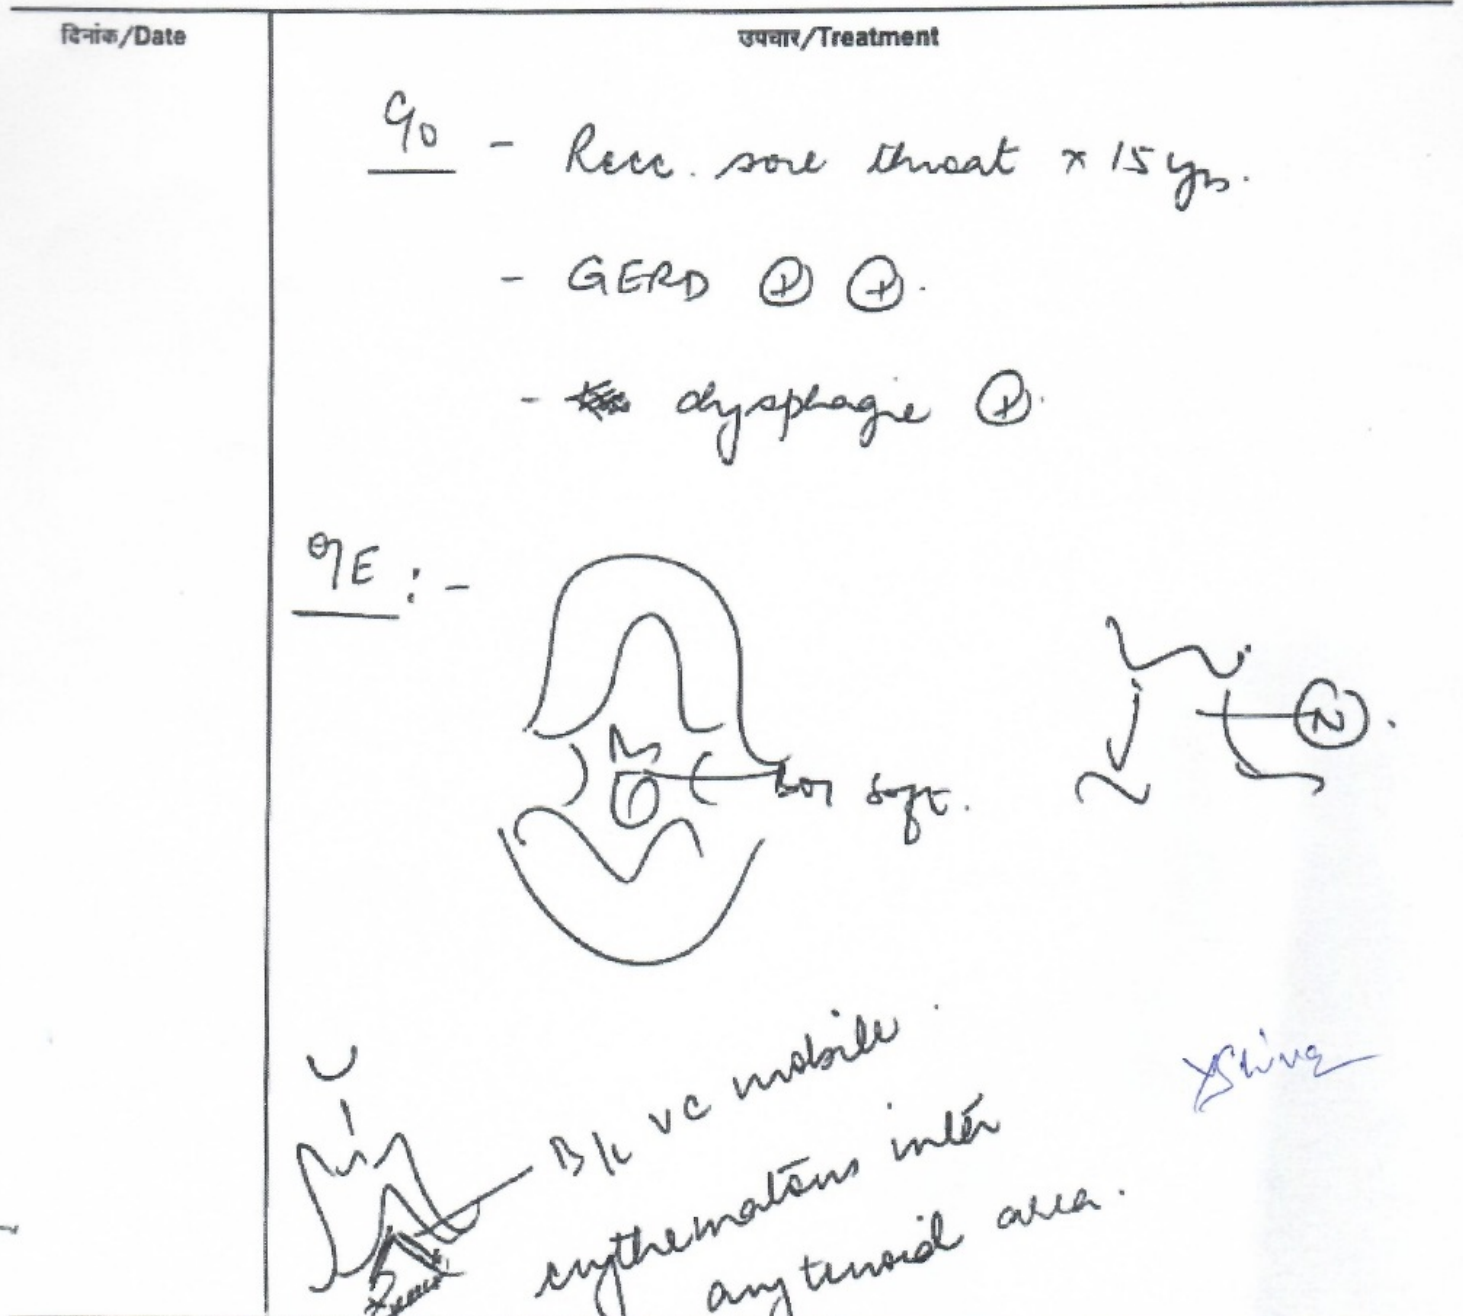 दिनांक/Date
उपचार/Treatment
C/o - Recc. sore throat x 15 yrs.
- GERD (+) (+).
- dysphagia (+).
O/E :-
(N).
soft.
B/L VC mobile.
erythematous inter
arytenoid area.